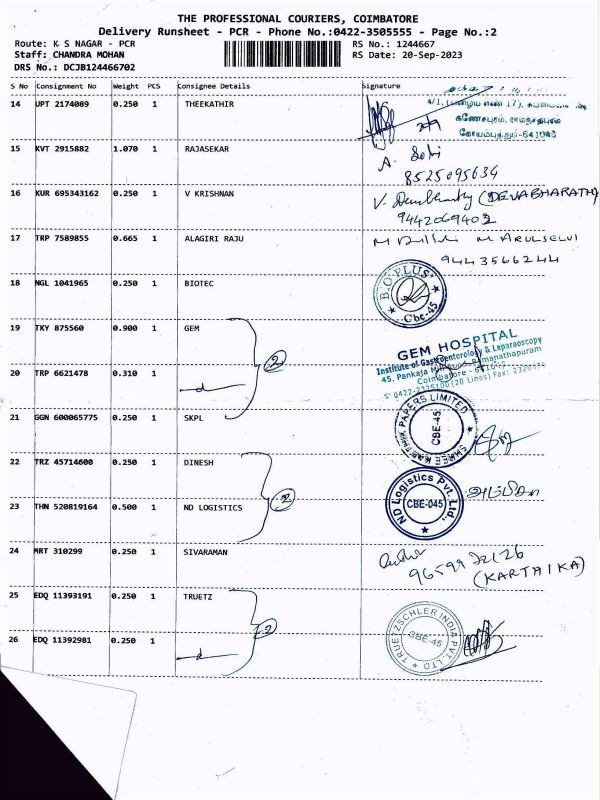 THE PROFESSIONAL COURIERS, COIMBATORE
Delivery Runsheet - PCR - Phone No.:0422-3505555 - Page No.:2
Route: K S NAGAR - PCR
RS No.: 1244667
Staff: CHANDRA MOHAN
RS Date: 20-Sep-2023
DRS No.: DCJB124466702
S No Consignment No Weight PCS Consignee Details Signature
14 UPT 2174089 0.250 1 THEEKATHIR
கணேசபுரம், ராமநாதபுரம்
கோயம்புத்தூர்-641045
15 KVT 2915882 1.070 1 RAJASEKAR
8525095634
16 KUR 695343162 0.250 1 V KRISHNAN
(DEVABHARATHI)
9442069402
17 TRP 7589855 0.665 1 ALAGIRI RAJU
M ARULSELVI
9443566244
18 NGL 1041965 0.250 1 BIOTEC
BIO PLUS
Cbe-45
19 TKY 875560 0.900 1 GEM
2
GEM HOSPITAL
Institute of Gastroenterology & Laparoscopy
45, Pankaja Mill Road, Ramanathapuram
Coimbatore - 641045
20 TRP 6621478 0.310 1
21 GGN 600065775 0.250 1 SKPL
SHREE KARTHIK PAPERS LIMITED
CBE-45
22 TRZ 45714600 0.250 1 DINESH
2
23 THN 520819164 0.500 1 ND LOGISTICS
ND Logistics Pvt. Ltd.,
CBE-045
24 MRT 310299 0.250 1 SIVARAMAN
(KARTHIKA)
25 EDQ 11393191 0.250 1 TRUETZ
2
TRUETZSCHLER INDIA PVT. LTD
CBE-45
26 EDQ 11392981 0.250 1